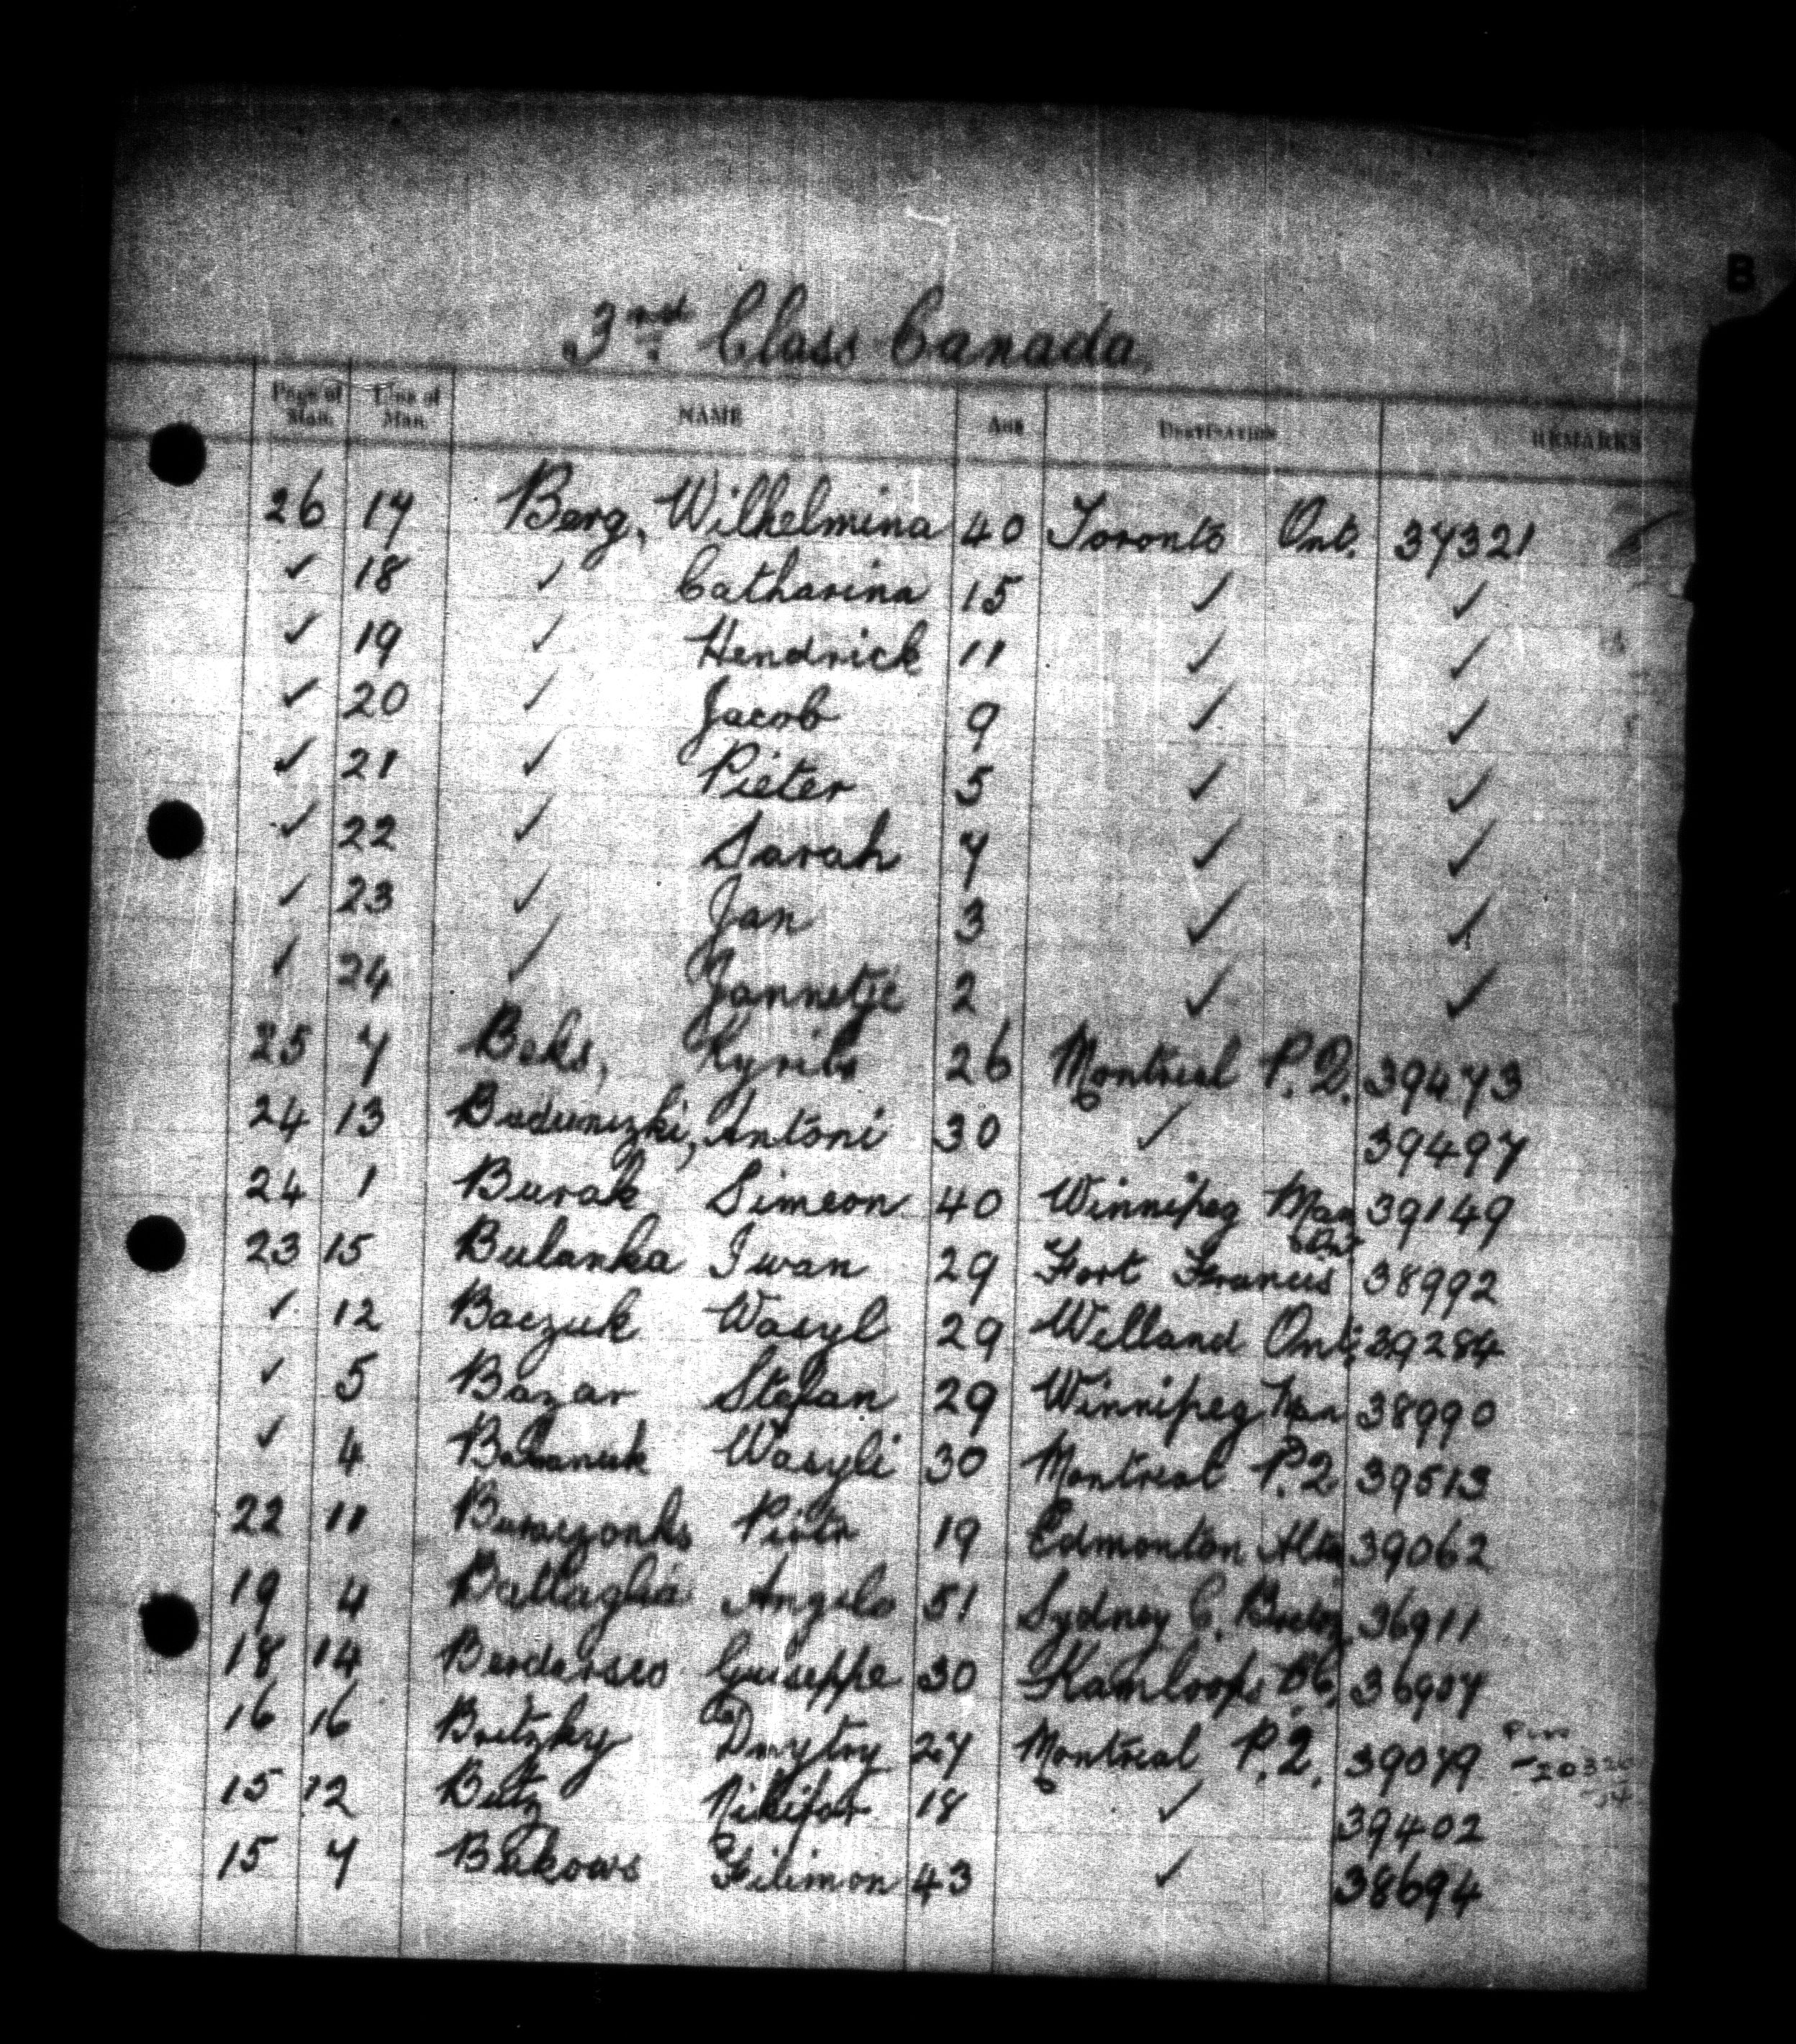 B
3rd Class Canada.
Page of Man. Line of Man. NAME Age Destination REMARKS
26 17 Berg, Wilhelmina 40 Toronto Ont. 37321
✓ 18 ✓ Catharina 15 ✓ ✓
✓ 19 ✓ Hendrick 11 ✓ ✓
✓ 20 ✓ Jacob 9 ✓ ✓
✓ 21 ✓ Pieter 5 ✓ ✓
✓ 22 ✓ Sarah 7 ✓ ✓
✓ 23 ✓ Jan 3 ✓ ✓
✓ 24 ✓ Jannetje 2 ✓ ✓
25 7 Beks, Kyrilo 26 Montreal P.Q. 39473
24 13 Antoni 30 ✓ 39497
24 1 Burak Simeon 40 Winnipeg Man 39149
23 15 Bulanka Iwan 29 Fort Francis Ont 38992
✓ 12 Baczuk Wasyl 29 Welland Ont. 39284
✓ 5 Bazar Stefan 29 Winnipeg Man 38990
✓ 4 Wasyli 30 Montreal P.Q 39513
22 11 Piotr 19 Edmonton Alta 39062
19 4 Battaglia Angelo 51 Sydney C. Breton 36911
18 14 Guiseppe 30 Kamloops BC. 36907
16 16 Britzky Dmytry 27 Montreal P.Q. 39079
15 12 Butz Nikifor 18 ✓ 39402
15 7 Filimon 43 ✓ 38694